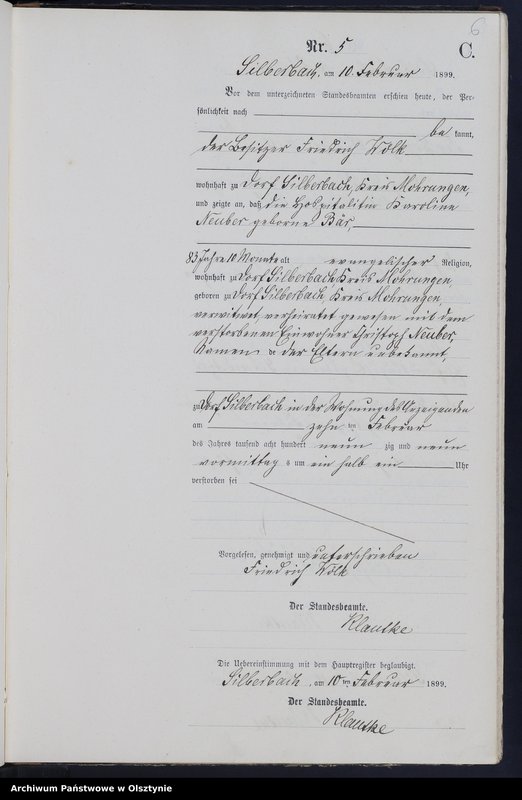 6
Nr. 5
C.
Silberbach, am 10. Februar 1899.
Vor dem unterzeichneten Standesbeamten erschien heute, der Per-
sönlichkeit nach
be kannt,
der Besitzer Friedrich Wölk
wohnhaft zu Dorf Silberbach, Kreis Mohrungen,
und zeigte an, daß die Hospitalitin Karoline
Neuber geborne Bär,
83 Jahre 10 Monate alt evangelischer Religion,
wohnhaft zu Dorf Silberbach Kreis Mohrungen,
geboren zu Dorf Silberbach, Kreis Mohrungen,
verwitwet, verheiratet gewesen mit dem
verstorbenen Einwohner Christoph Neuber,
Namen der Eltern unbekannt,
zu Dorf Silberbach in der Wohnung des Anzeigenden
am zehn ten Februar
des Jahres tausend acht hundert neun zig und neun
vormittag s um ein halb ein Uhr
verstorben sei
Vorgelesen, genehmigt und unterschrieben
Friedrich Wölk
Der Standesbeamte.
Klautke
Die Uebereinstimmung mit dem Hauptregister beglaubigt.
Silberbach, am 10 ten Februar 1899.
Der Standesbeamte.
Klautke
Archiwum Państwowe w Olsztynie